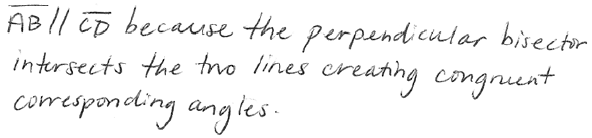 A̅B̅ // C̅D̅ because the perpendicular bisector
intersects the two lines creating congruent
corresponding angles.